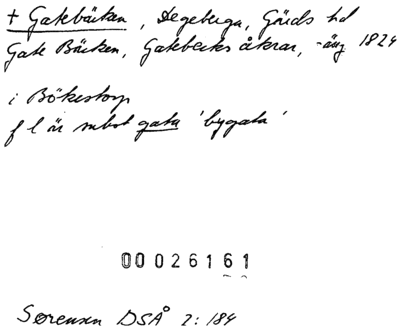 + Gatebäcken, Degeberga, Gärds hd
Gate Bäcken, Gatebecks åkrar, -äng 1824
i Bökestorp
f l är subst gata 'bygata'
00026161
Sørensen DSÅ 2: 184